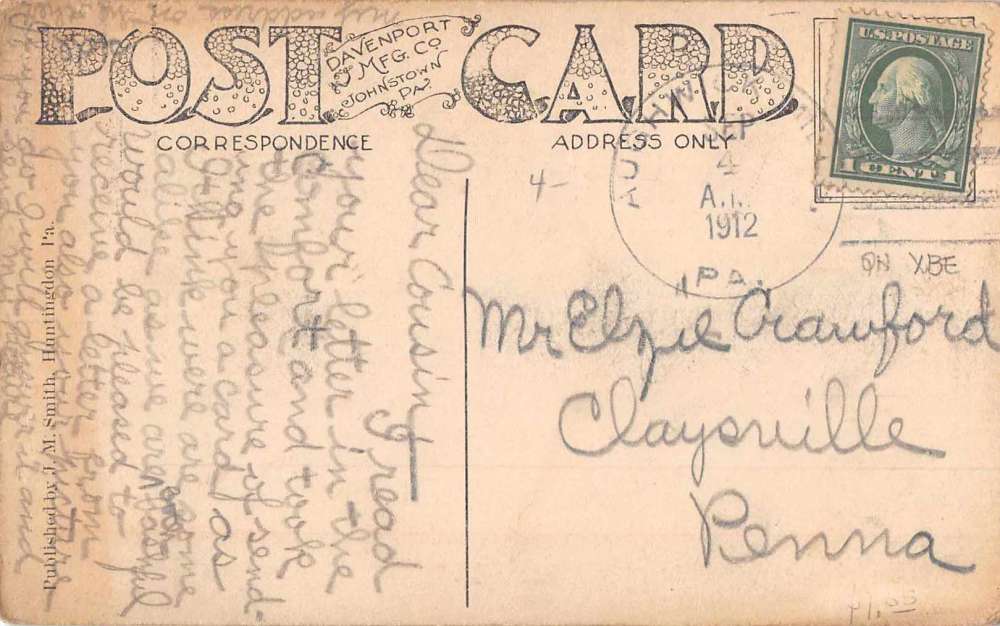 POST CARD
DAVENPORT
MFG. CO
JOHNSTOWN
PA.
CORRESPONDENCE
ADDRESS ONLY
U.S. POSTAGE
1 CENT 1
4
A.M.
1912
PA.
4-
ON XBE
Mr Elzie Crawford
Claysville
Penna
Dear Cousin
I read
your letter in the
Comfort and took
the pleasure of send-
ing you a card as
I think we are some
alike as we are
bashful
would be pleased to
receive a letter from
you also
my address
Published by J. M. Smith, Huntingdon Pa.